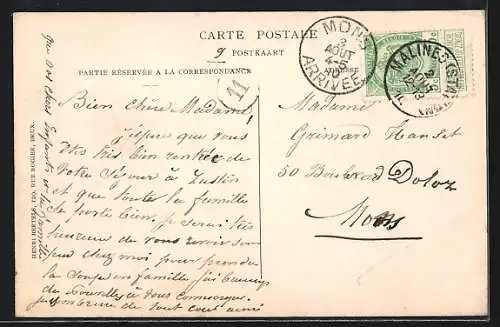 CARTE POSTALE
POSTKAART
PARTIE RÉSERVÉE A LA CORRESPONDANCE
MONS
2
AOUT
4-5
ARRIVÉE
MALINES (STATION)
11
Bien chère Madame
J'espère que vous
êtes très bien rentrée de
votre séjour à Zustin
et que toute la famille
se porte bien, je serai très
heureux de vous revoir
chez moi pour prendre
la Soupe en famille j'ai
de à vous
de tout cœur ami
que vos chers enfants et la famille
Madame
Grimard Hanset
50 Boulevard Dolez
Mons
HENRI 120, RUE ROGIER, BRUX.